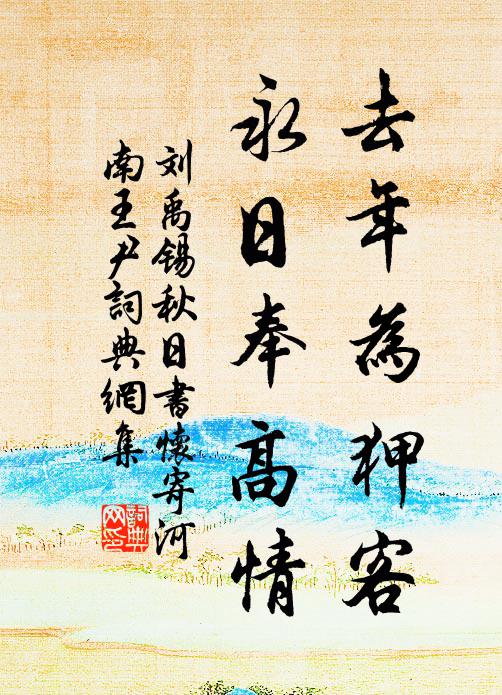 去年為狎客
永日奉高情
刘禹锡秋日書懷寄河
南王尹詞典網集